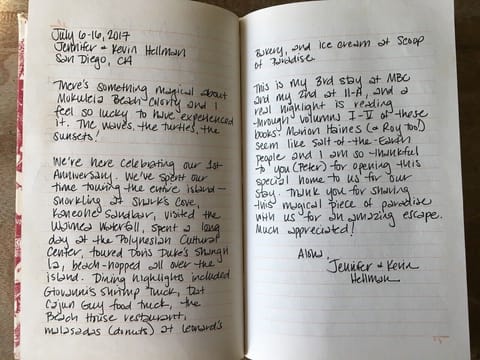 July 6-16, 2017
Jennifer & Kevin Hellman
San Diego, CA
There's something magical about
Mokuleia Beach Colony and I
feel so lucky to have experienced
it. The waves, the turtles, the
sunsets!
We're here celebrating our 1st
Anniversary. We've spent our
time touring the entire island—
snorkling at Shark's Cove,
Kaneohe Sandbar, visited the
Waimea Waterfall, spent a long
day at the Polynesian Cultural
Center, toured Doris Duke's Shangri
la, beach-hopped all over the
island. Dining highlights included
Giovanni's shrimp truck, Dat
Cajun Guy food truck, the
Beach House restaurant,
malasadas (donuts) at Leonard's
Bakery, and ice cream at Scoop
of Paradise.
This is my 3rd stay at MBC
and my 2nd at 11-A, and a
real highlight is reading
through volumes I-V of these
books. Marion Haines (& Roy too!)
seem like salt-of-the-Earth
people and I am so thankful
to you (Peter) for opening this
special home to us for our
stay. Thank you for sharing
this magical piece of paradise
with us for an amazing escape.
Much appreciated!
Aloha,
Jennifer & Kevin
Hellman